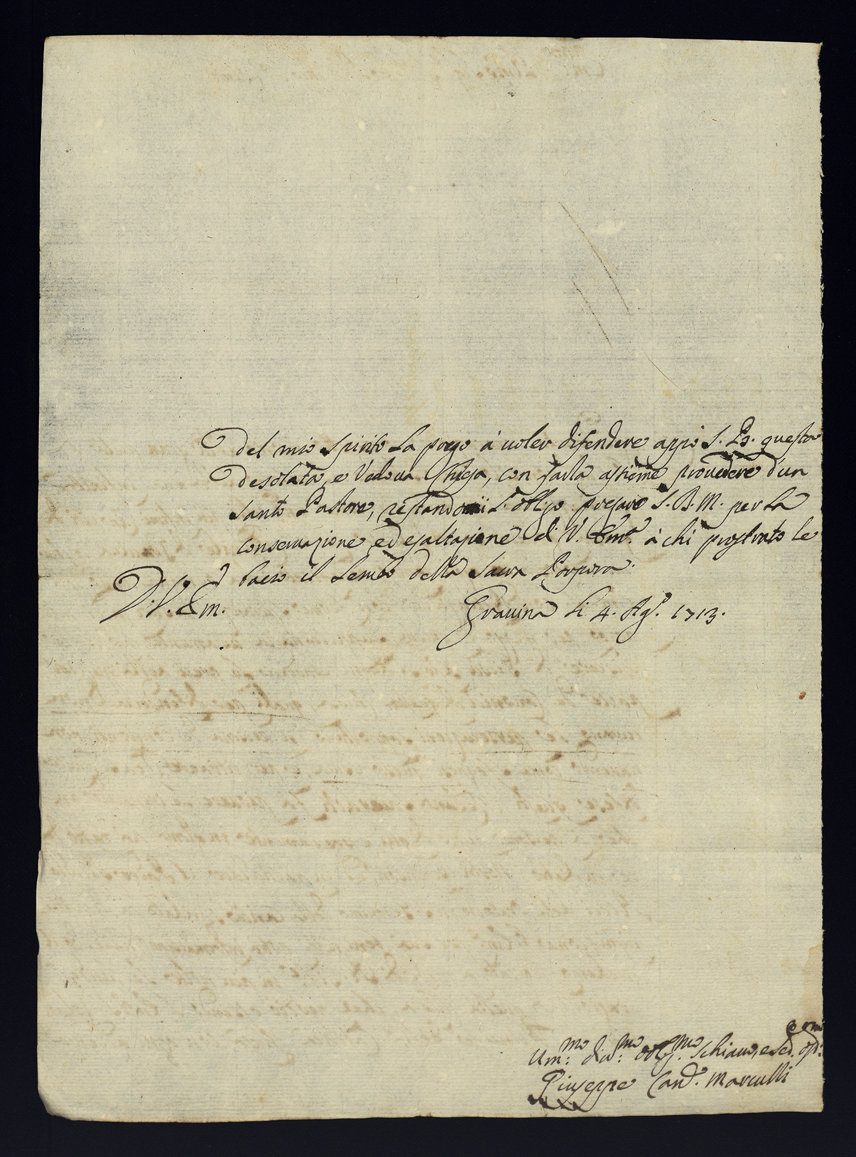 del mio Spirito La prego à voler difendere appò S. B. questa
desolata, e Vedova Chiesa, con farla assieme provedere d'un
Santo Pastore, restandomi l'obligo pregare S.D.M. per la
conservazione ed esaltazione di V. Em.ª à chi prostrato le
bacio il Lembo della Sacra Porpora.
D. V. Em. Gravina li 4. Ag.º 1713.
Um.mo div.mo oblg.mo schiavo, e ser.
Giuseppe Can.º Marculli